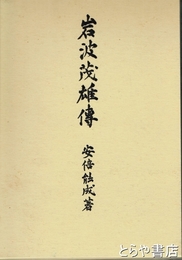 岩波茂雄傳
安倍能成著
とらや書店